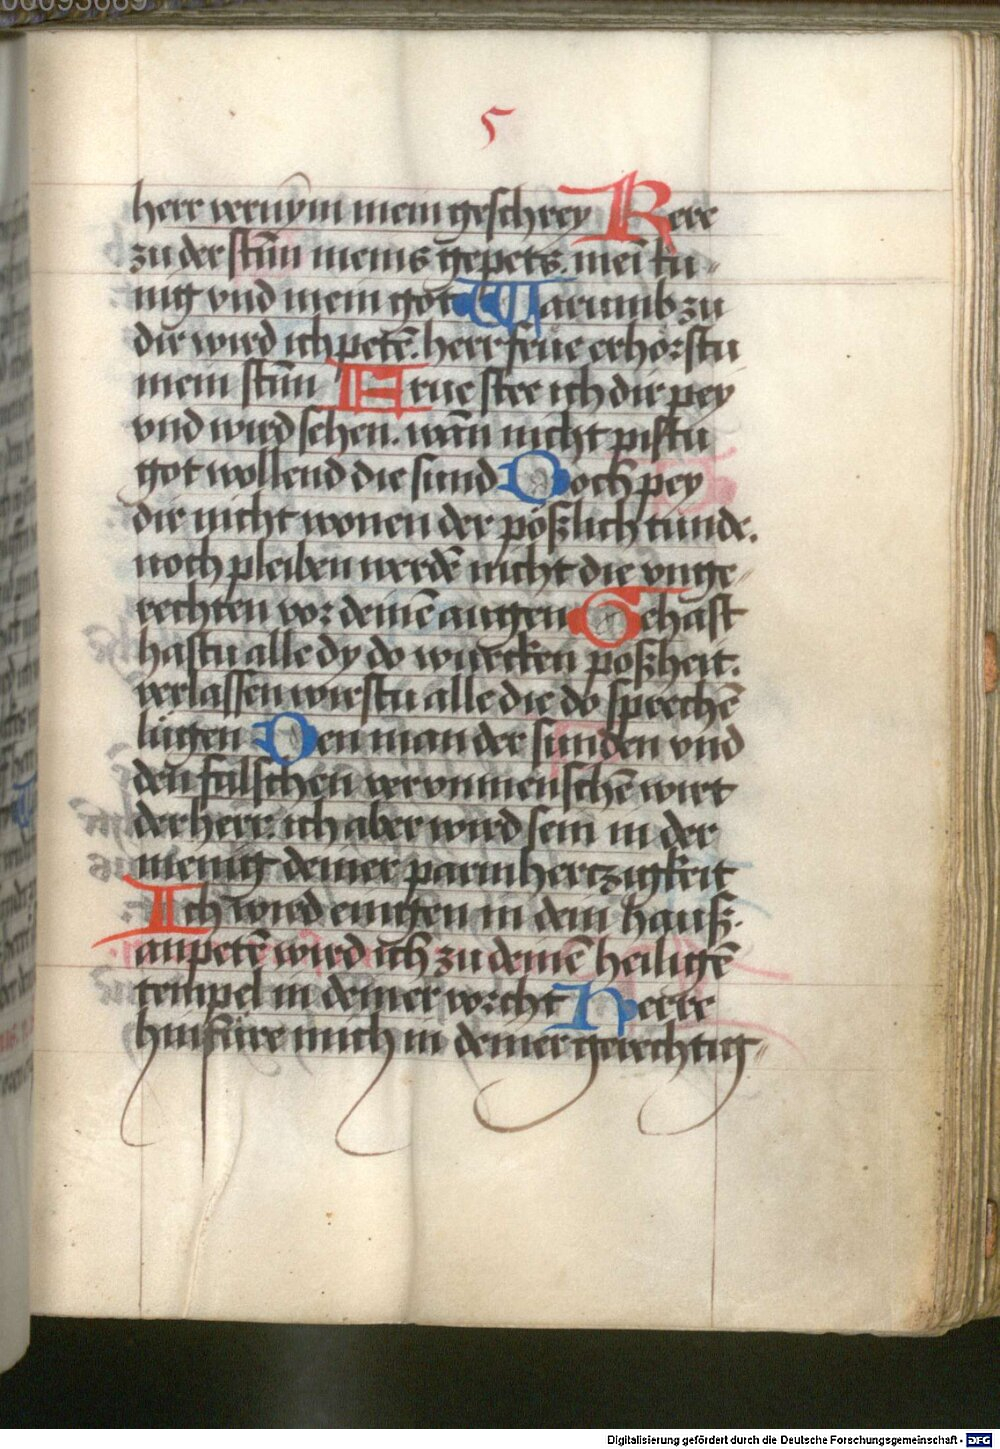 00093669
5
herr vernÿm mein geschrey Kere
zu der stim̄ meins gepets. mei᷑ ku-
nig vnd mein got Warumb zu
dir wird ich petē. herr frue erhörstu
mein stim̄ Frue stee ich dir pey
vnd wird sehen. wān nicht pistu
got wollend die sund Noch pey
dir nicht wonen der pößlich tunde.
noch pleiben werdē nicht die vnge-
rechten vor deinē augen Gehast
hastu alle dy do wurcken poßheit.
verlassen wirstu alle die do sprechē
lügen Den man der sunden vnd
den falschen vervnmenschē wirt
der herr. ich aber wird sein in der
menig deiner parmhertzigkeit
Ich wird eingen in dein hauß.
anpetē wird ich zu deinē heiligē
tempel in deiner vorcht Herre
hinfüre mich in deiner gerechtig-
Digitalisierung gefördert durch die Deutsche Forschungsgemeinschaft - DFG